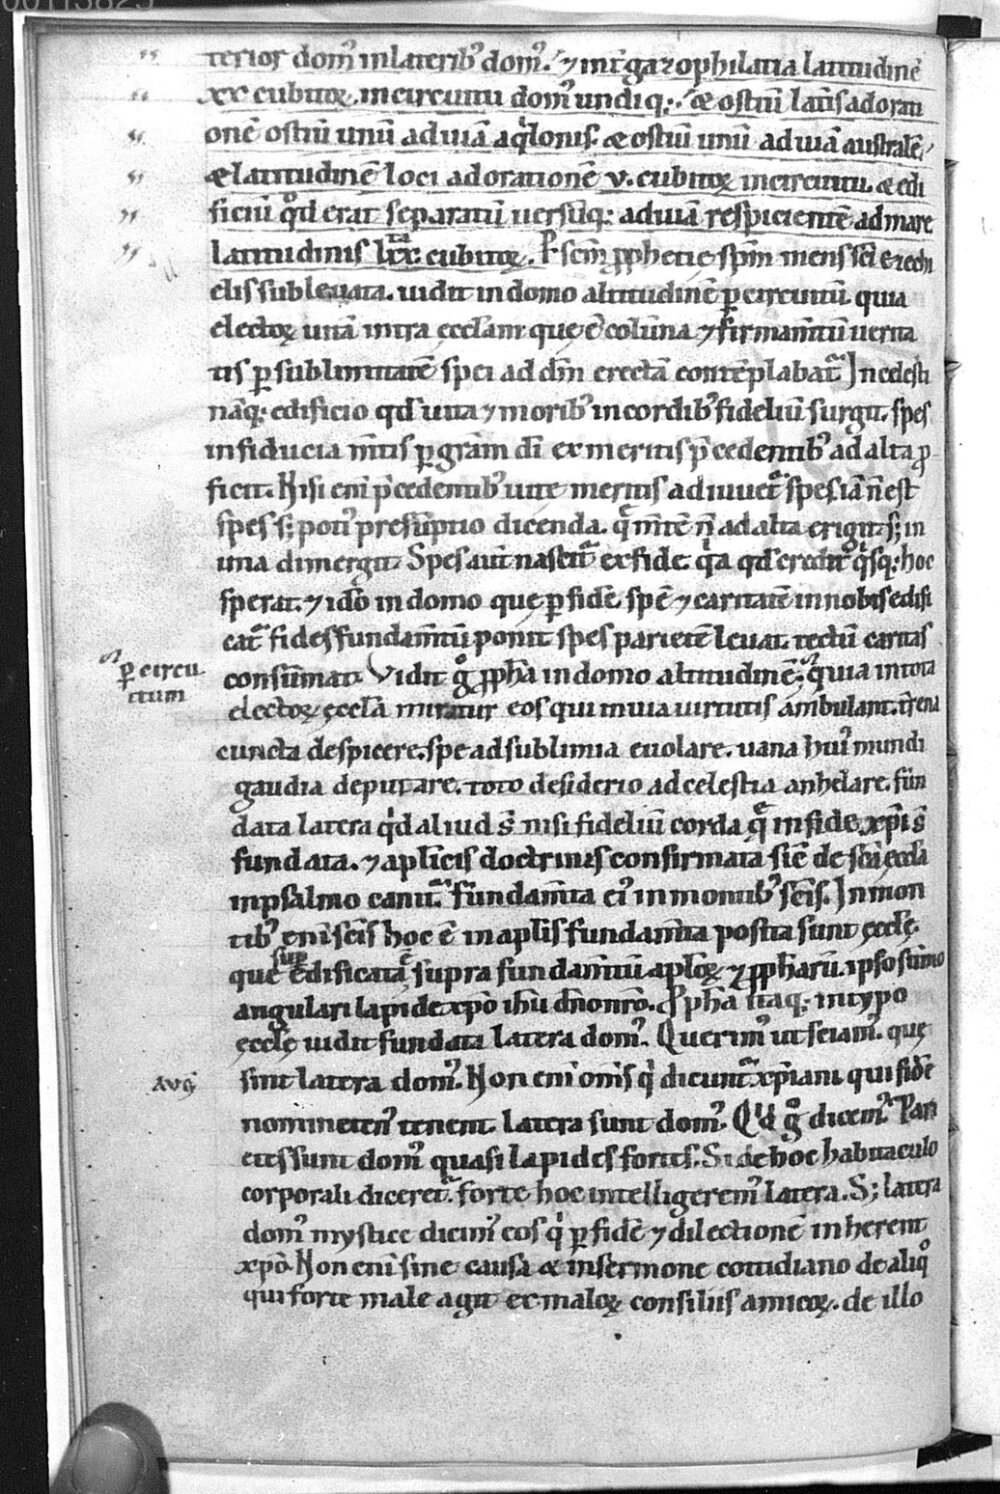 terior domꝰ in laterib; domꝰ. ⁊ int̄ gazophilatia latitudinē
xx cubitoꝝ. in circuitu domꝰ undiq;. & ostiū lat̄is ad orati
onē ostiū unū ad uiā aq̇lonis. & ostiū unū ad uiā australē.
& latitudinē loci ad orationē v. cubitoꝝ in circuitu. & edi
ficiū qͦd erat separatū uersūq; ad uiā respicientē ad mare
latitudinis lxx cubitoꝝ. Ꝑ sc̄m ꝓphetie sp̄m mens sc̄i ezechi
elis subleuata. uidit in domo altitudinē ꝑ circuitū. quia
electoꝝ unā intra eccl̄am que ē colūna ⁊ firmam̄tū uerita
tis ꝑ sublimitatē spei ad dm̄ erectā contēplabat᷑. In celesti
nāq; edificio qd̄ uita ⁊ morib; in cordib; fideliū surgit. spes
in fiducia m̄tis ꝑ grām dī ex meritis p̄cedentib; ad alta ꝓ
ficit. Nisi eni p̄cedentib; uite meritis adiuuet᷑ spes. iā n̄ est
spes s; potiꝰ presūptio dicenda. q̄ m̄tē n̄ ad alta erigit. s; in
ima dimergit. Spes aut̄ nascit᷑ ex fide. q̇a qd̄ credit q̇sq; hoc
sperat. ⁊ idō in domo que ꝑ fidē spē ⁊ caritatē in nobis edifi
cat᷑ fides fundam̄tū ponit spes parietē leuat. tectū caritas
ꝑ circu
itum
consūmat. Vidit gͦ ꝓph̄a in domo altitudinē. quia in tota
electoꝝ ęccl̄a miratur eos qui in uia uirtutis ambulant. t̄rena
cuncta despicere. spe ad sublimia euolare. uana huiꝰ mundi
gaudia deputare. toto desiderio ad celestia anhelare. fun
data latera q̇d aliud s̄ nisi fideliū corda q̄ in fide xp̄i s̄
fundata. ⁊ apl̄icis doctrinis confirmata sic̄ de sc̄a ęccl̄a
in psalmo canit᷑. fundam̄ta eiꝰ in montib; sc̄is. In mon
tib; eni sc̄is hoc ē in apl̄is fundam̄ta posita sunt ęccl̄ę.
sup
que edificata ē supra fundam̄tū apl̄oꝝ ⁊ ꝓph̄arū. ipso sūmo
angulari lapide xp̄o ih̄u dn̄o nr̄o. Ꝓph̄a itaq; in typo
ęccl̄ę uidit fundata latera domꝰ. Querimꝰ ut sciamꝰ. quę
Auḡ
sint latera domꝰ. Non eni om̄s q̇ dicunt᷑ xp̄iani qui fidē
nomine ten᷑ tenent. latera sunt domꝰ. Q̇d gͦ dicemꝰ. Pari
etes sunt domꝰ quasi lapides fortes. Si de hoc habitaculo
corporali diceret᷑. forte hoc intelligeremꝰ latera. S; latera
domꝰ mystice dicimꝰ eos q̇ ꝑ fidē ⁊ dilectionē inherent
xp̄o. Non eni sine causa & in sermone cottidiano de aliqͦ
qui forte male agit ex maloꝝ consiliis amicoꝝ. de illo